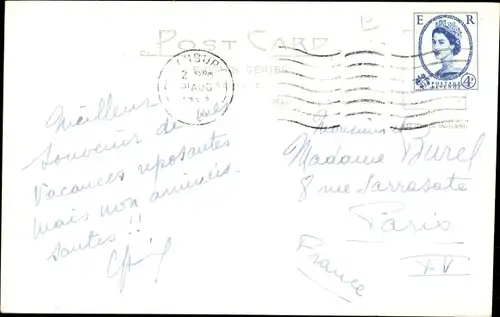 POST CARD
E R
4D
POSTAGE REVENUE
SERIES
AUG
Meilleurs
souvenirs de mes
vacances reposantes
mais non amincis-
santes !!
Monsieur et
Madame Burel
8 rue Sarrasate
Paris
XV
France